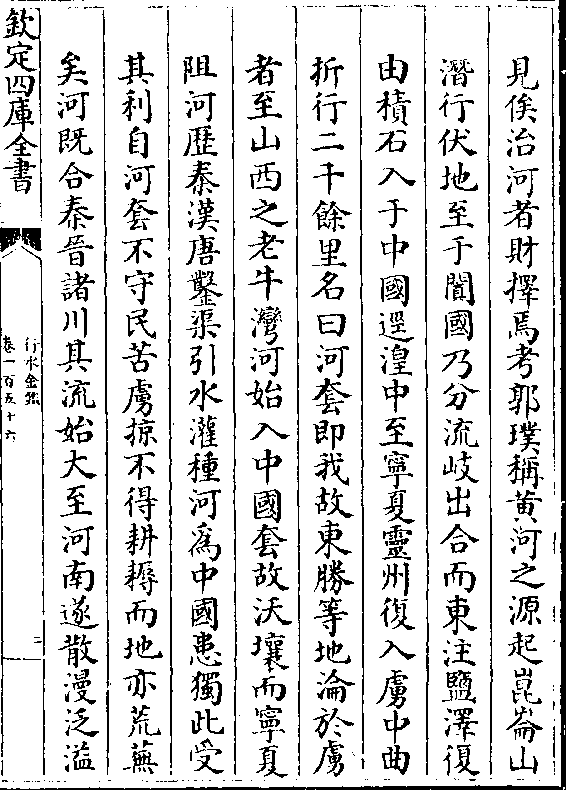 見俟治河者財擇焉考郭璞稱黄河之源起崑崙山
潛行伏地至于闐國乃分流岐出合而東注鹽澤復
由積石入于中國逕湟中至寧夏靈州復入虜中曲
折行二千餘里名曰河套即我故東勝等地淪於虜
者至山西之老牛灣河始入中國套故沃壤而寧夏
阻河歷秦漢唐鑿渠引水灌種河爲中國患獨此受
其利自河套不守民苦虜掠不得耕耨而地亦荒蕪
矣河既合秦晉諸川其流始大至河南遂散漫泛溢
欽定四庫全書
行水金鑑
卷一百五十六
二